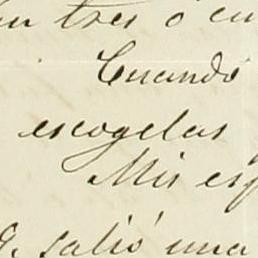 tres ó cu
Cuando
escogelas
Mis esp
salió una